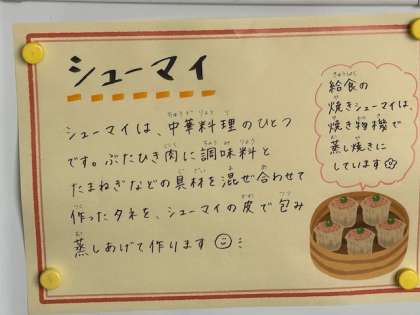 シューマイ
シューマイは、中華料理のひとつ
です。ぶたひき肉に調味料と
たまねぎなどの具材を混ぜ合わせて
作ったタネを、シューマイの皮で包み
蒸しあげて作ります
給食の
焼きシューマイは、
焼き物機で
蒸し焼きに
しています